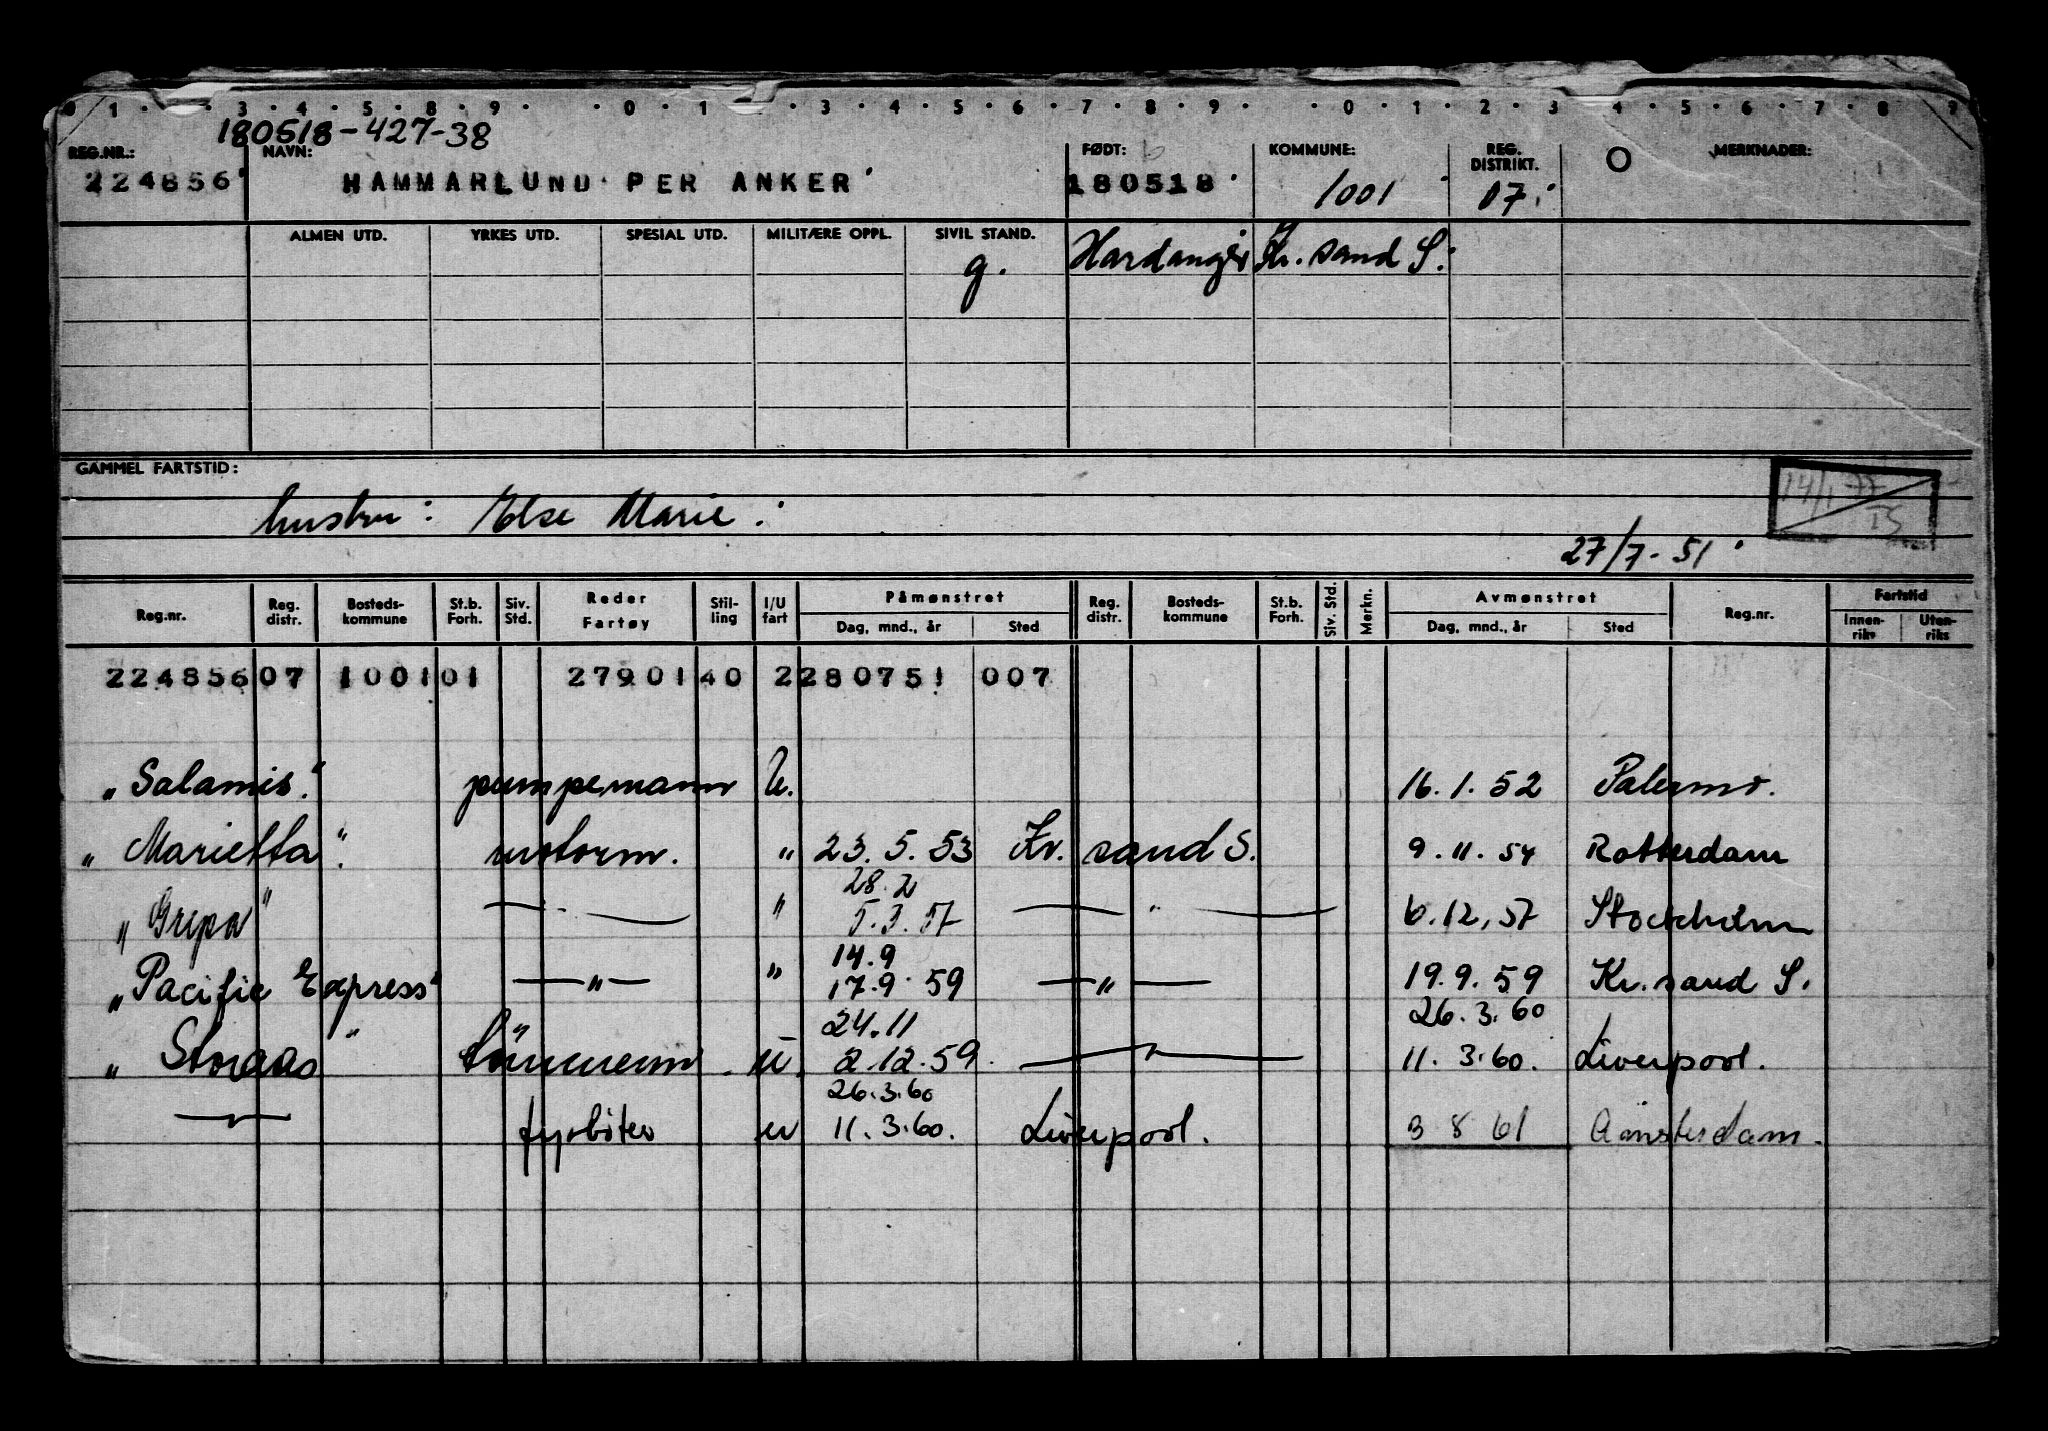 1 3 4 5 8 9 0 1 3 4 5 6 7 8 9 0 1 2 3 4 5 6 7 8 9
180518-427-38
REG.NR.: NAVN: FØDT: KOMMUNE: REG. DISTRIKT. MERKNADER:
224856 HAMMARLUND PER ANKER 180518 1001 07
ALMEN UTD. YRKES UTD. SPESIAL UTD. MILITÆRE OPPL. SIVIL STAND.
g. Hardanger Kr. sand S.
GAMMEL FARTSTID:
14/1 77
hustru: Else Marie.
27/7-51
Reg.nr. Reg. distr. Bosteds-kommune St.b. Forh. Siv. Std. Reder Fartøy Stil-ling I/U fart Påmønstret Reg. distr. Bosteds-kommune St.b. Forh. Siv. Std. Merkn. Avmønstret Reg.nr. Fartstid
Dag, mnd., år Sted Dag, mnd., år Sted Innen-riks Uten-riks
224856 07 1001 01 27901 40 2 280751 007
"Salamis." pumpemann U. 16.1.52 Palermo.
"Marietta". motorm. " 23.5.53 Kr. sand S. 9.11.54 Rotterdam
28.2
"Grepa" — " — " 5.3.57 — " — 6.12.57 Stockholm
14.9
"Pacific Express" — " — " 17.9 59 — " — 19.9.59 Kr. sand S.
24.11 26.3.60
"Storaas" U. 2.12.59. — " — 11.3.60. Liverpool.
26.3.60
— " — fyrbøter U 11.3.60. Liverpool. 3 8 61 Amsterdam.